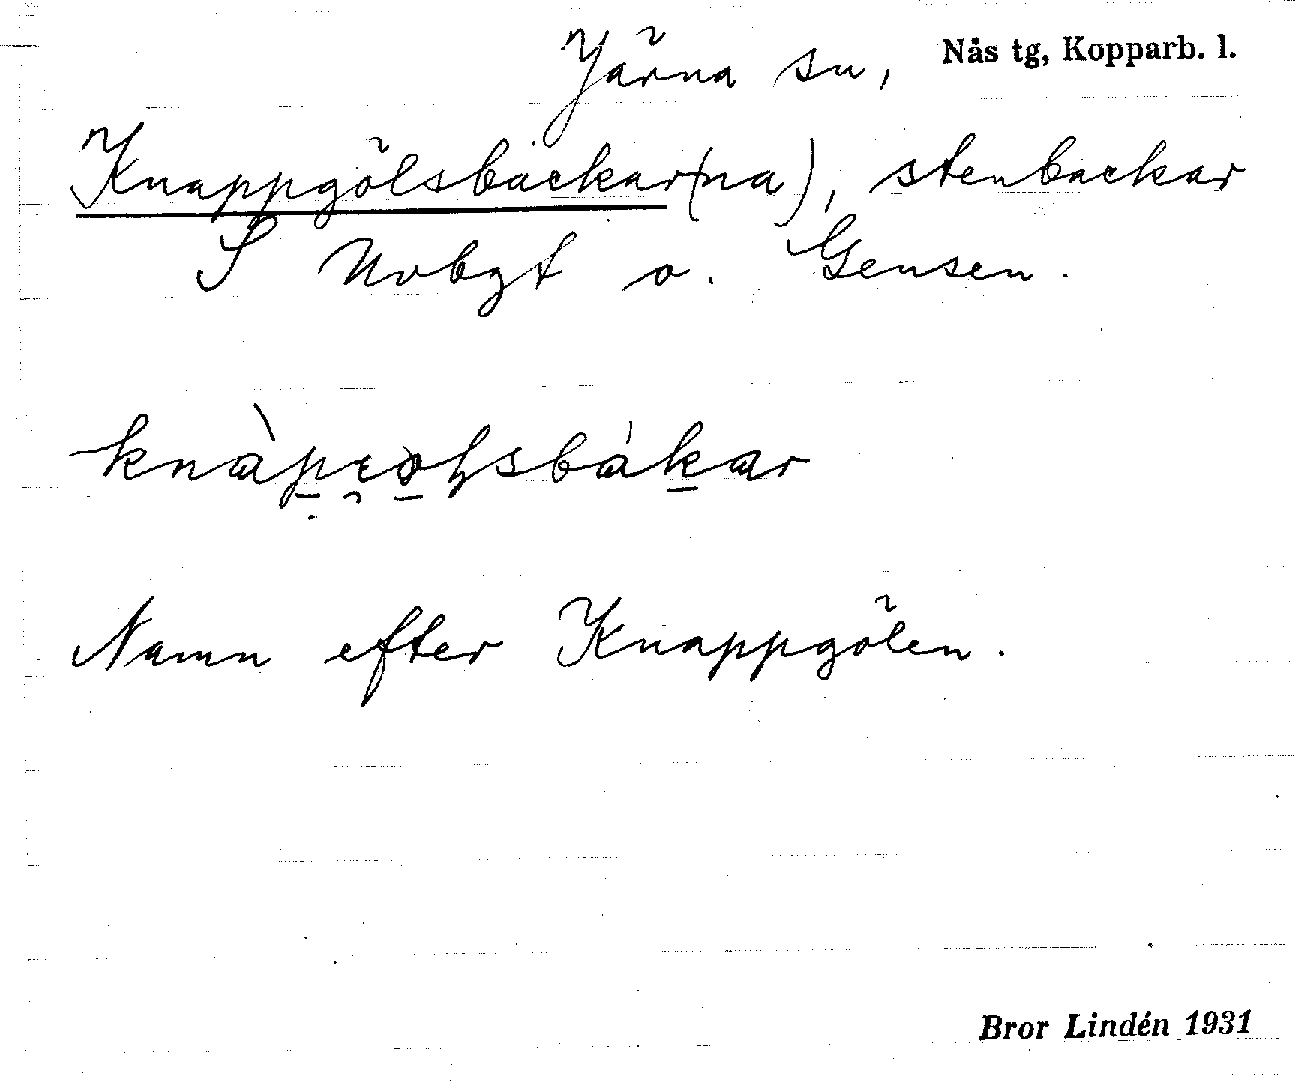 Järna sn, Nås tg, Kopparb. l.
Knappgölsbackar(na), stenbackar
S Nvbgt o. Gensen.
Namn efter Knappgölen.
Bror Lindén 1931